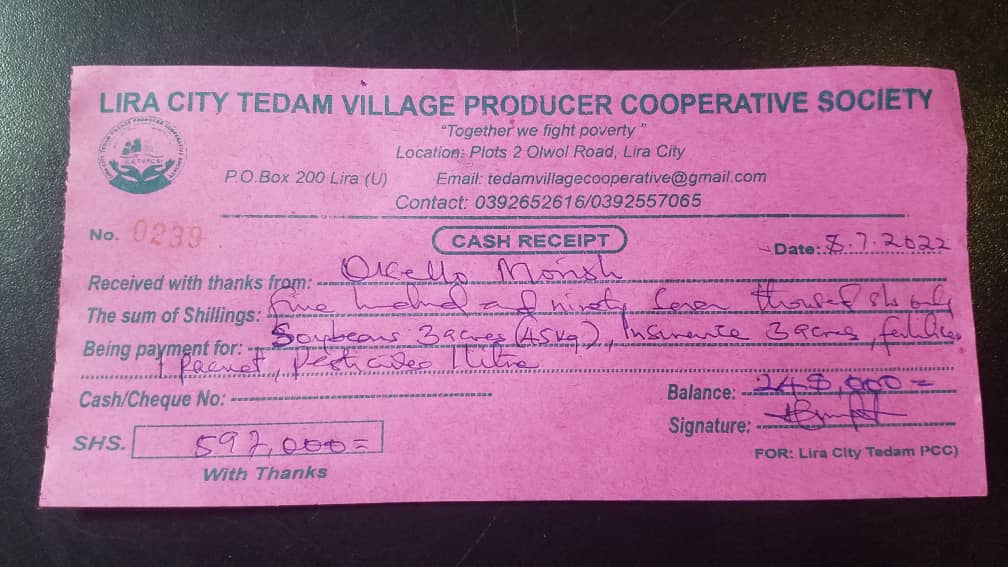 LIRA CITY TEDAM VILLAGE PRODUCER COOPERATIVE SOCIETY
"Together we fight poverty"
Location: Plots 2 Olwol Road, Lira City
P.O.Box 200 Lira (U) Email: tedamvillagecooperative@gmail.com
Contact: 0392652616/0392557065
No. 0239 CASH RECEIPT Date: 8.7.2022
Received with thanks from: Okello
The sum of Shillings: five hundred and ninety thousand shs only
Being payment for: Soybeans 3 acres (45kg), Insurance 3 acres,
1 Packet, Pesticides 1 litre
Cash/Cheque No: Balance: 248,000=
Signature:
SHS. 597,000=
FOR: Lira City Tedam PCC)
With Thanks